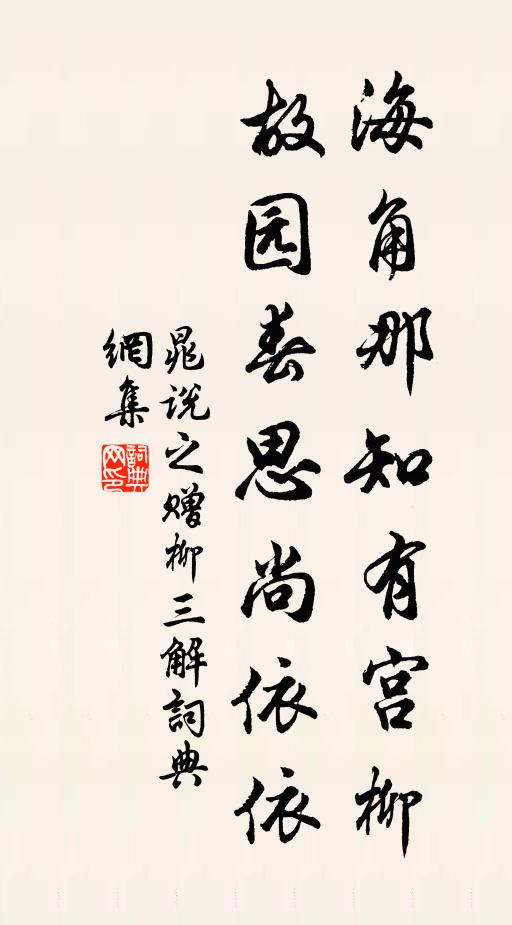 海角那知有宫柳
故园春思尚依依
晁说之赠柳三解詞典
網集
詞典
网印